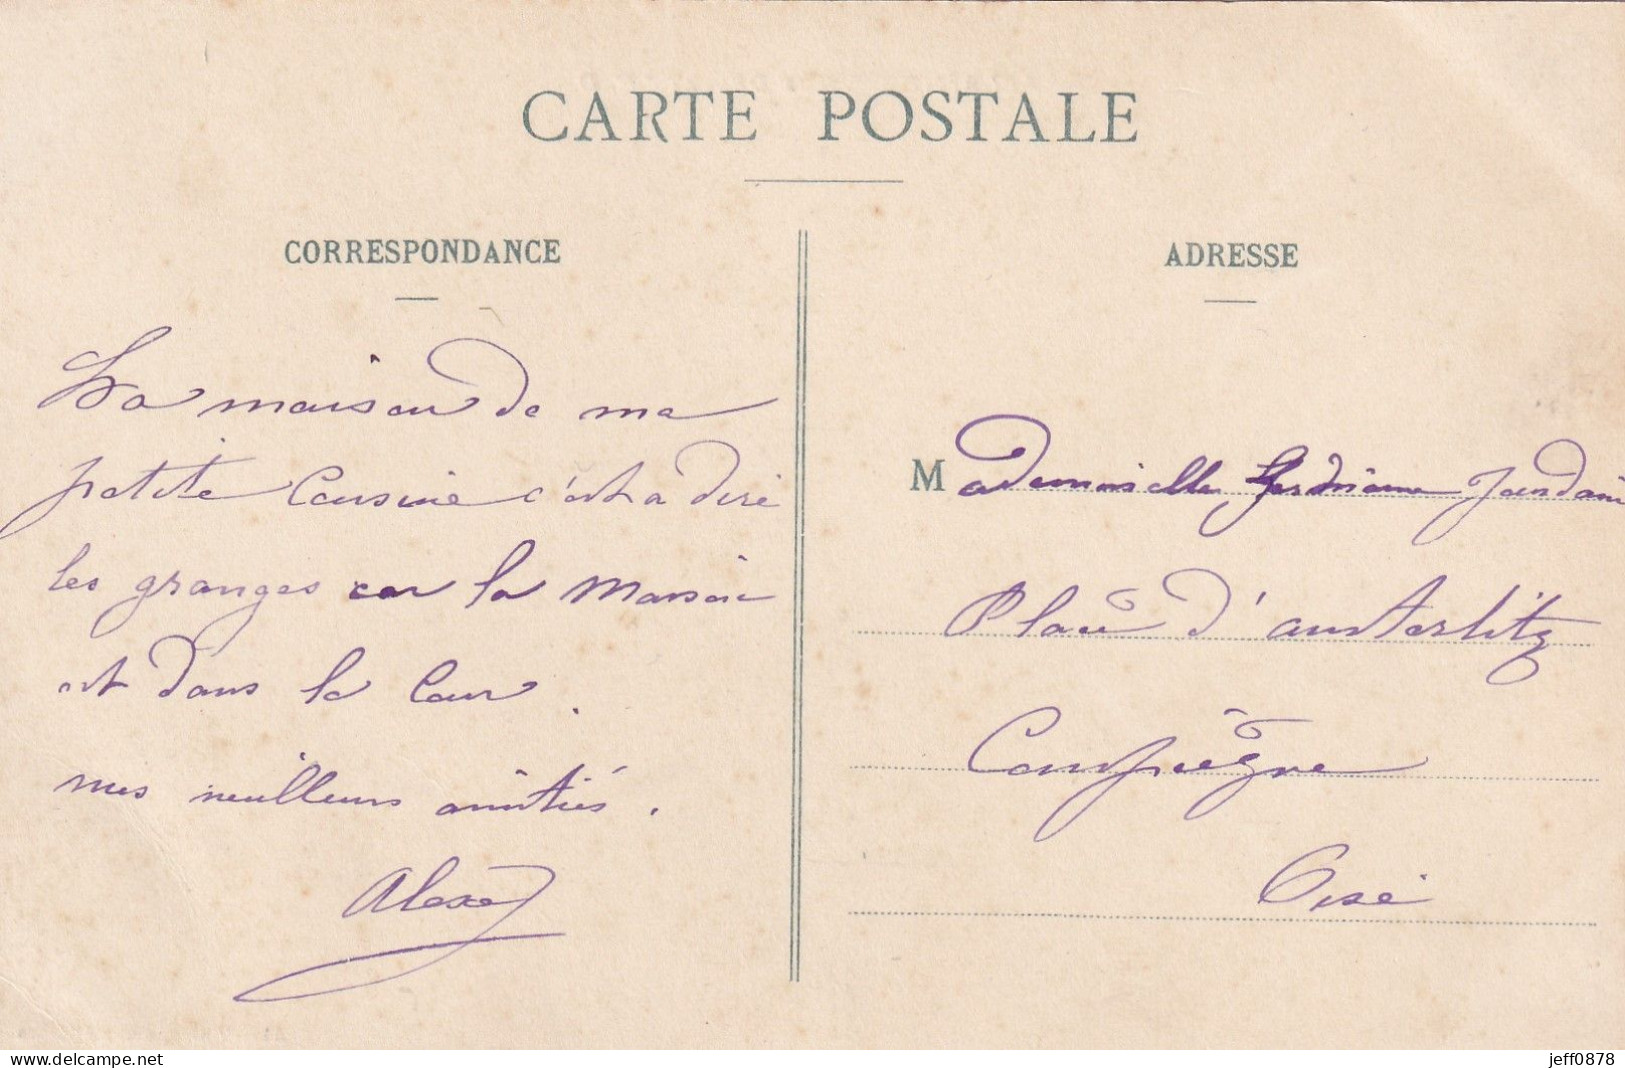 CARTE POSTALE
CORRESPONDANCE
La maison de ma
petite Cousine c'est a dire
les granges car la Maison
est dans la Cour.
mes meilleurs amitiés.
Alex
ADRESSE
Mademoiselle Jourdain
Place d'austerlitz
Compiègne
Oise
www.delcampe.net
jeff0878